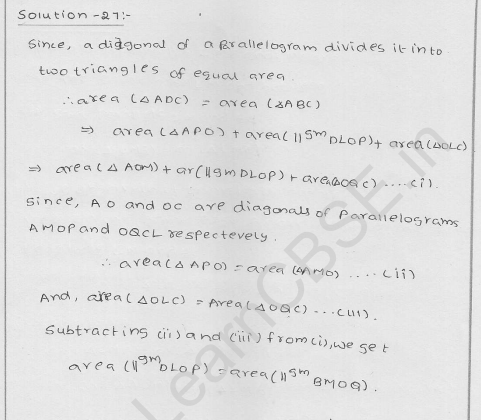 Solution -27:-
Since, a diagonal of a Parallelogram divides it into
two triangles of equal area.
∴ area (△ADC) = area (△ABC)
⇒ area (△APO) + area(||gm DLOP) + area(△OLC)
⇒ area(△ AOM) + ar(||gm DLOP) + area△OQC) ....(i).
Since, AO and OC are diagonals of Parallelograms
AMOP and OQCL respectevely.
∴ area(△APO) = area (△AMO) ....(ii)
And, area(△OLC) = Area(△OQC) ...(iii).
Subtracting (ii) and (iii) from (i), we get
area (||gm DLOP) = area(||gm BMOQ).
LearnCBSE.in